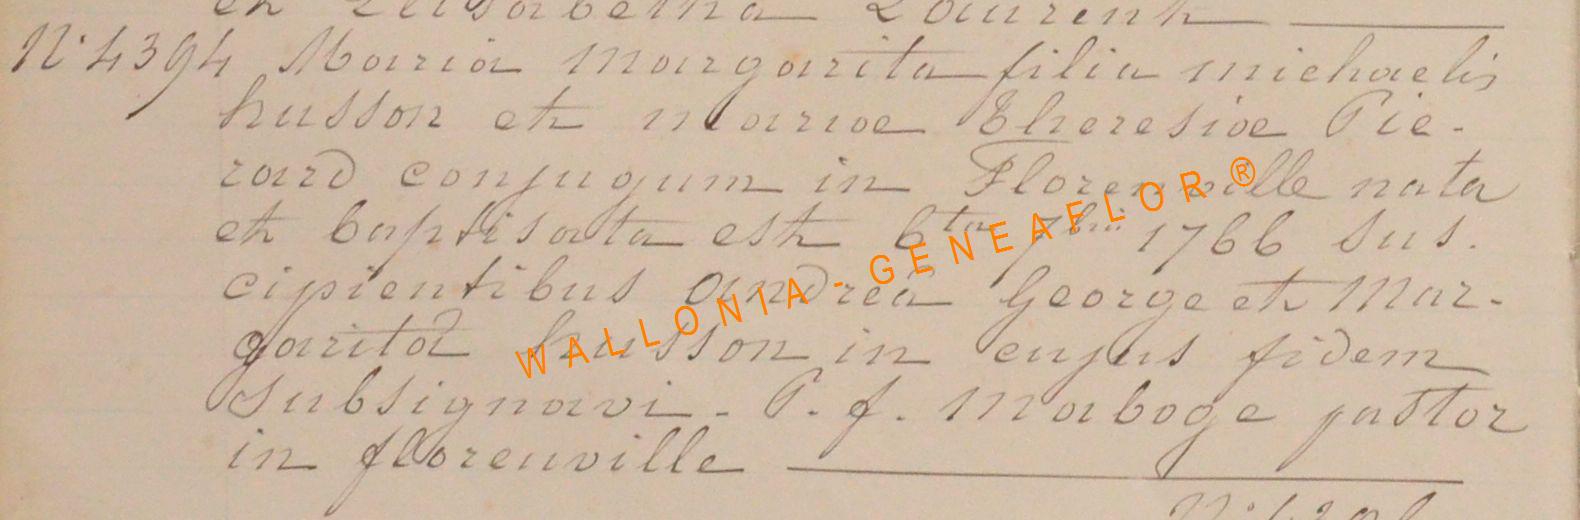 et Elisabetha Laurent
N° 4394 Maria Margarita filia michaelis
husson et mariae Theresiae Pie-
rard conjugum in Florenville nata
et baptisata est 6ta 7bris 1766 sus.
cipientibus andrea George et Mar-
garita husson in cujus fidem
subsignavi - P. f. Maboge pastor
in florenville
WALLONIA - GENEAFLOR ®